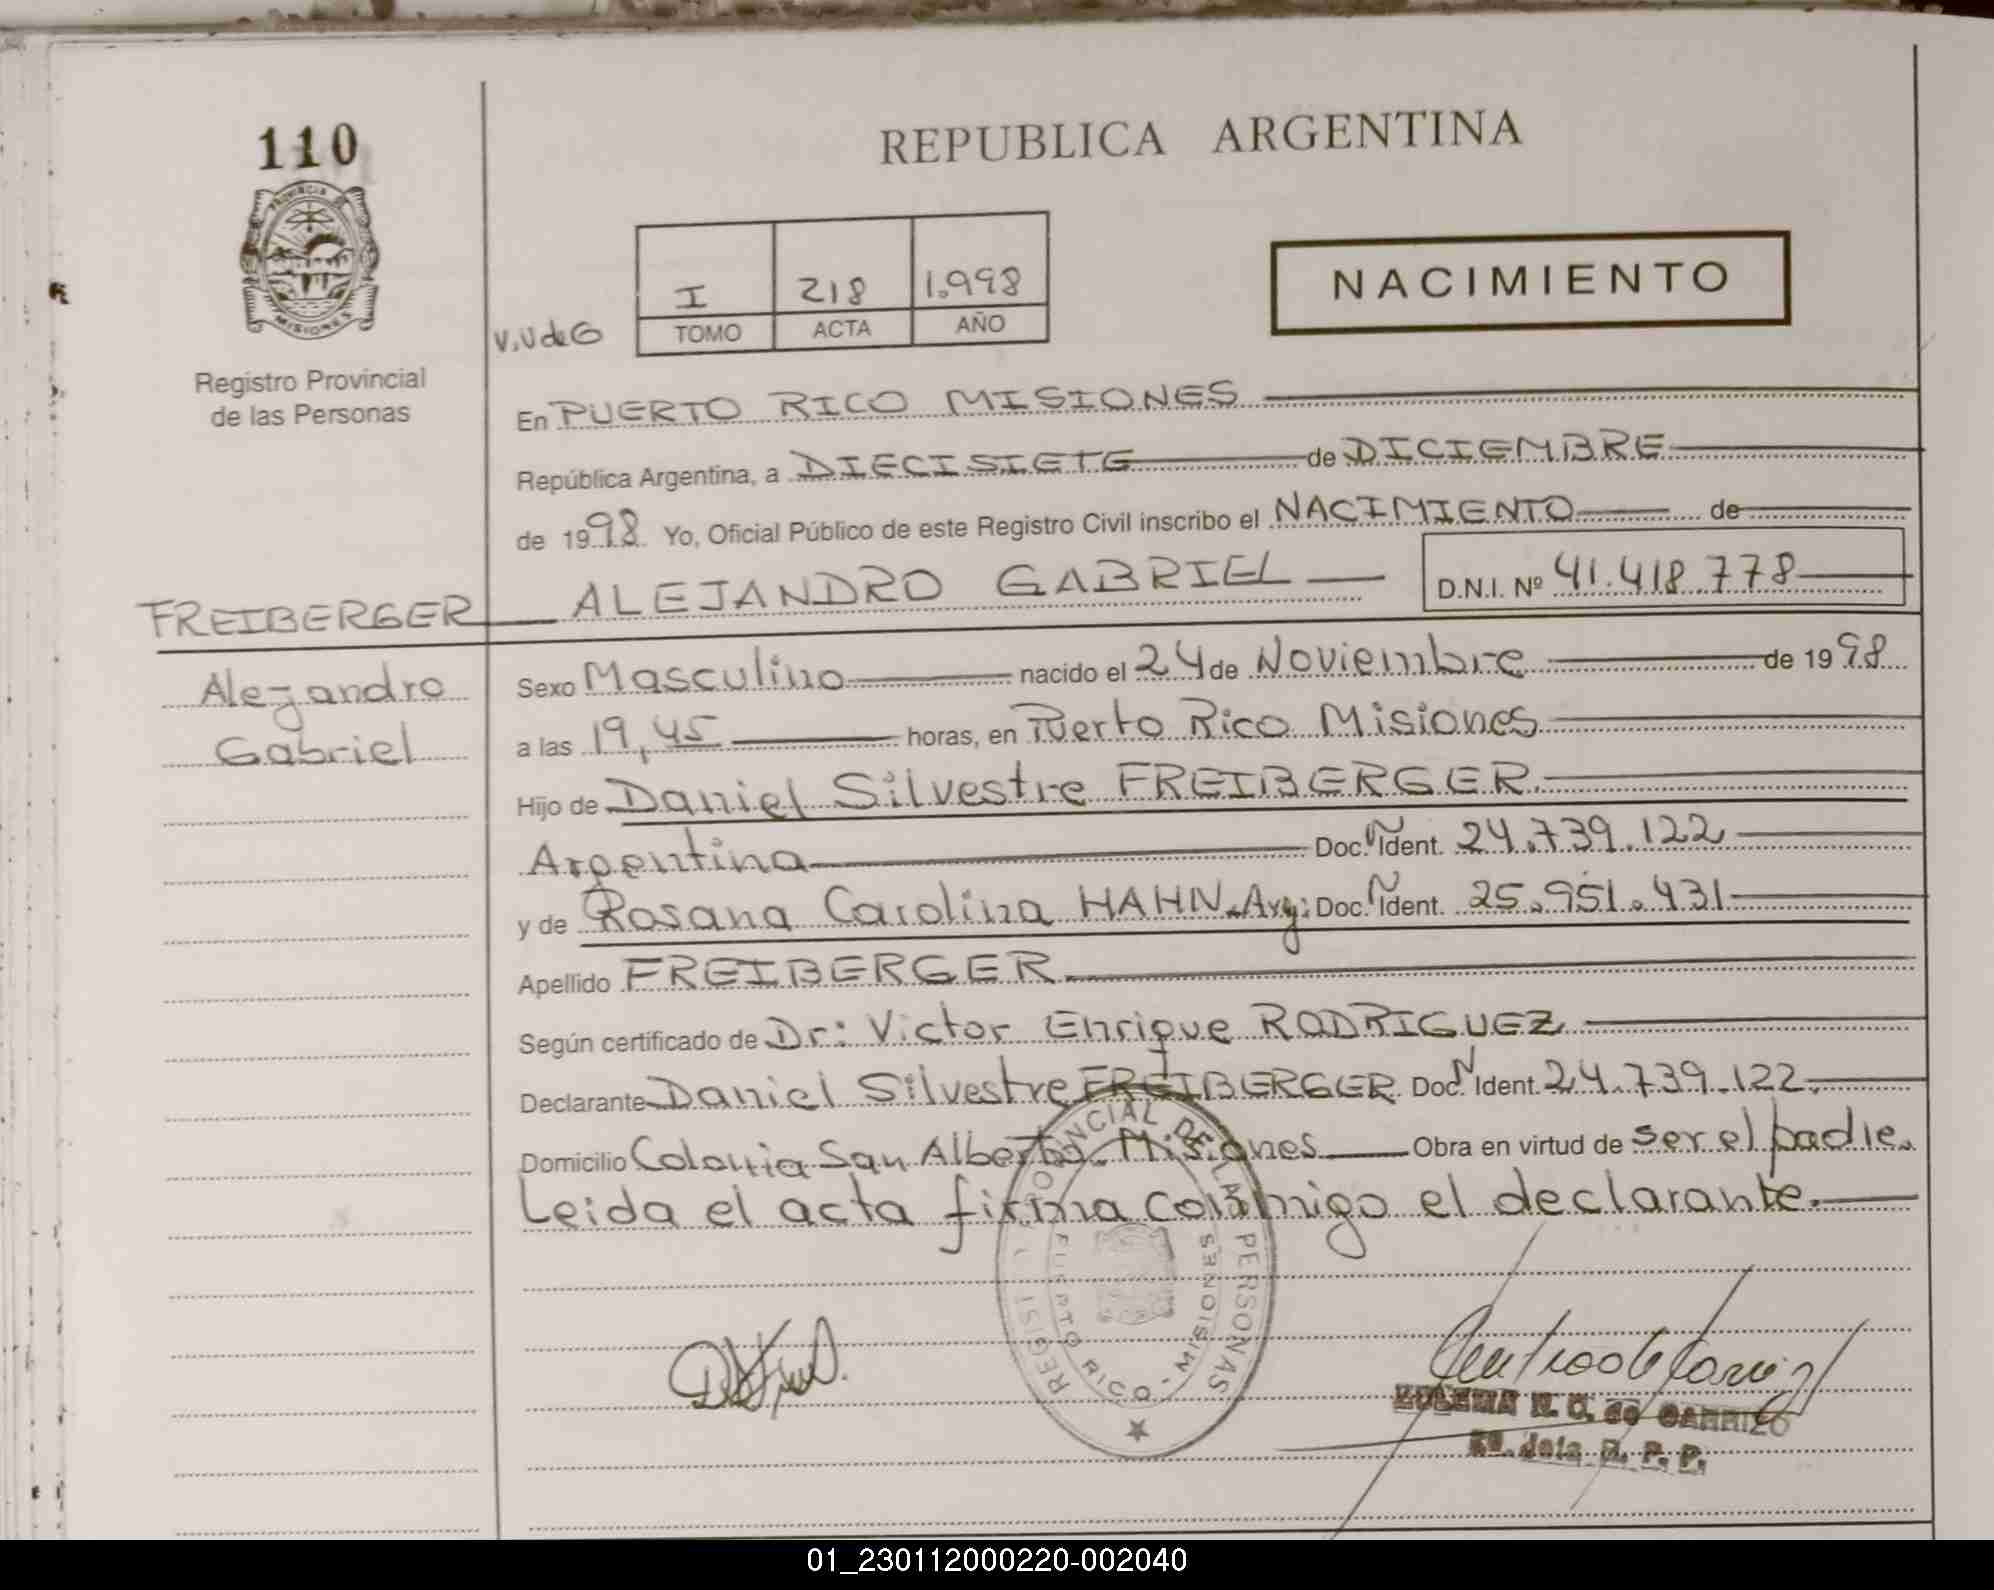 110
PROVINCIA DE
MISIONES
Registro Provincial
de las Personas
REPUBLICA ARGENTINA
I 218 1.998
TOMO ACTA AÑO
NACIMIENTO
V.V de G
En PUERTO RICO MISIONES
República Argentina, a DIECISIETE de DICIEMBRE
de 1998 Yo, Oficial Público de este Registro Civil inscribo el NACIMIENTO de
FREIBERGER ALEJANDRO GABRIEL D.N.I. Nº 41.418.778
Alejandro
Gabriel
Sexo Masculino nacido el 24 de Noviembre de 1998
a las 19,45 horas, en Puerto Rico Misiones
Hijo de Daniel Silvestre FREIBERGER.
Argentina Doc. N Ident. 24.739.122
y de Rosana Carolina HAHN. Arg: Doc. N Ident. 25.951.431
Apellido FREIBERGER.
Según certificado de Dr: Victor Enrique RODRIGUEZ
Declarante Daniel Silvestre FREIBERGER. Doc. N Ident. 24.739.122.
Domicilio Colonia San Alberto. Misiones Obra en virtud de ser el padre.
Leida el acta firma conmigo el declarante.
REGIST PROVINCIAL DE LAS PERSONAS
PUERTO RICO - MISIONES
ZULEMA N. C. de CARRIZO
R. P. P.
01_230112000220-002040